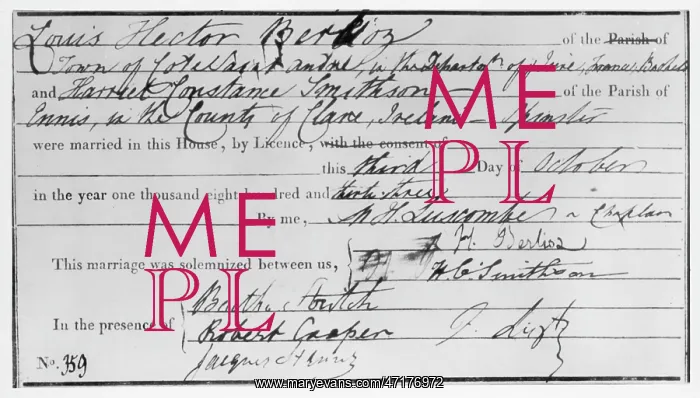 Louis Hector Berlioz of the Parish of
Town of Cote Saint andré, in the Departmt of Isère, France, Bachelor
and Harriet Constance Smithson of the Parish of
Ennis, in the County of Clare, Ireland Spinster
were married in this House, by Licence, with the consent of
this third Day of October
in the year one thousand eight hundred and thirty three
By me, M H Luscombe a Chaplain
This marriage was solemnized between us, H. Berlioz
H C Smithson
In the presence of Bertha Stritch
Robert Cooper F. Liszt
Jacques Henry
No. 359
ME
PL
ME
PL
www.maryevans.com/47176972